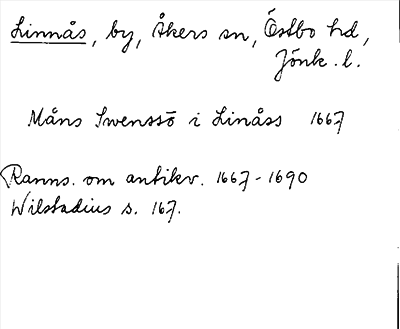 Linnås, by, Åkers sn, Östbo hd,
Jönk. l.
Måns Swenssö i Linåss 1667
Ranns. om antikv. 1667-1690
Wilstadius s. 167.